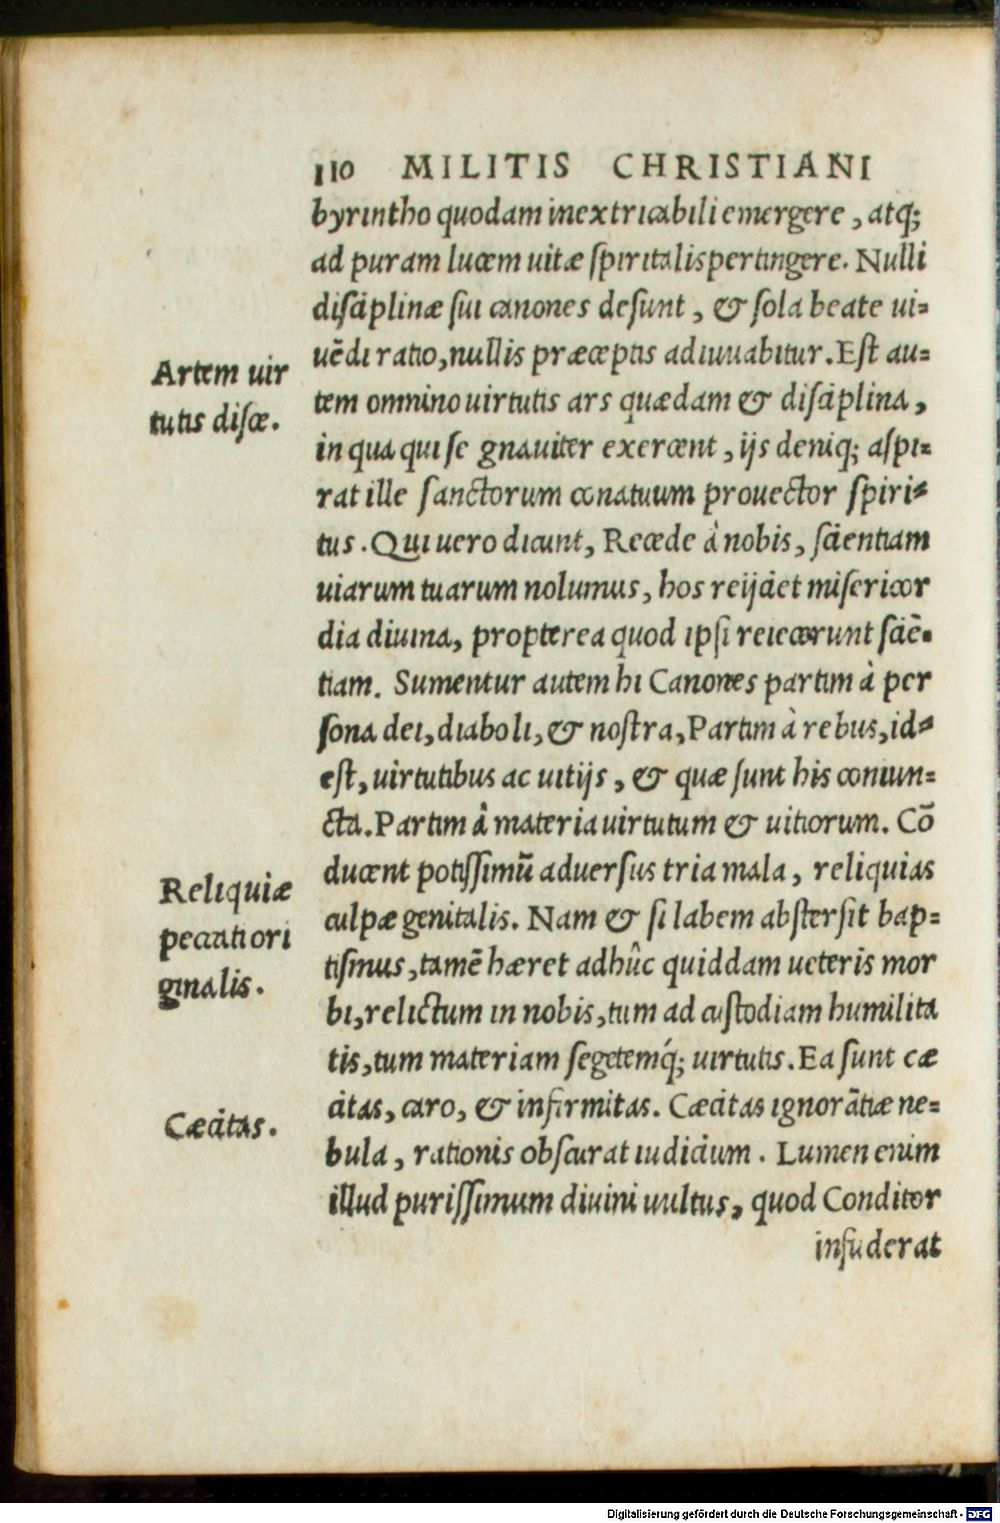 110 MILITIS CHRISTIANI
byrintho quodam inextricabili emergere, atq;
ad puram lucem uitæ spiritalis pertingere. Nulli
disciplinæ sui canones desunt, & sola beate ui=
uēdi ratio, nullis præceptis adiuuabitur. Est au=
Artem uir
tem omnino uirtutis ars quædam & disciplina,
tutis disce.
in qua qui se gnauiter exercent, ijs deniq; aspi=
rat ille sanctorum conatuum prouector spiri=
tus. Qui uero dicunt, Recede à nobis, scientiam
uiarum tuarum nolumus, hos reijciet misericor
dia diuina, propterea quod ipsi reiecerunt sciē=
tiam. Sumentur autem hi Canones partim à per
sona dei, diaboli, & nostra, Partim à rebus, id=
est, uirtutibus ac uitijs, & quæ sunt his coniun=
cta. Partim à materia uirtutum & uitiorum. Cō
ducent potissimū aduersus tria mala, reliquias
Reliquiæ
culpæ genitalis. Nam & si labem abstersit bap=
peccati ori
tismus, tamē hæret adhûc quiddam ueteris mor
ginalis.
bi, relictum in nobis, tum ad custodiam humilita
tis, tum materiam segetemq́; uirtutis. Ea sunt cæ
citas, caro, & infirmitas. Cæcitas ignorātiæ ne=
Cæcitas.
bula, rationis obscurat iudicium. Lumen enim
illud purissimum diuini uultus, quod Conditor
infuderat
Digitalisierung gefördert durch die Deutsche Forschungsgemeinschaft - DFG